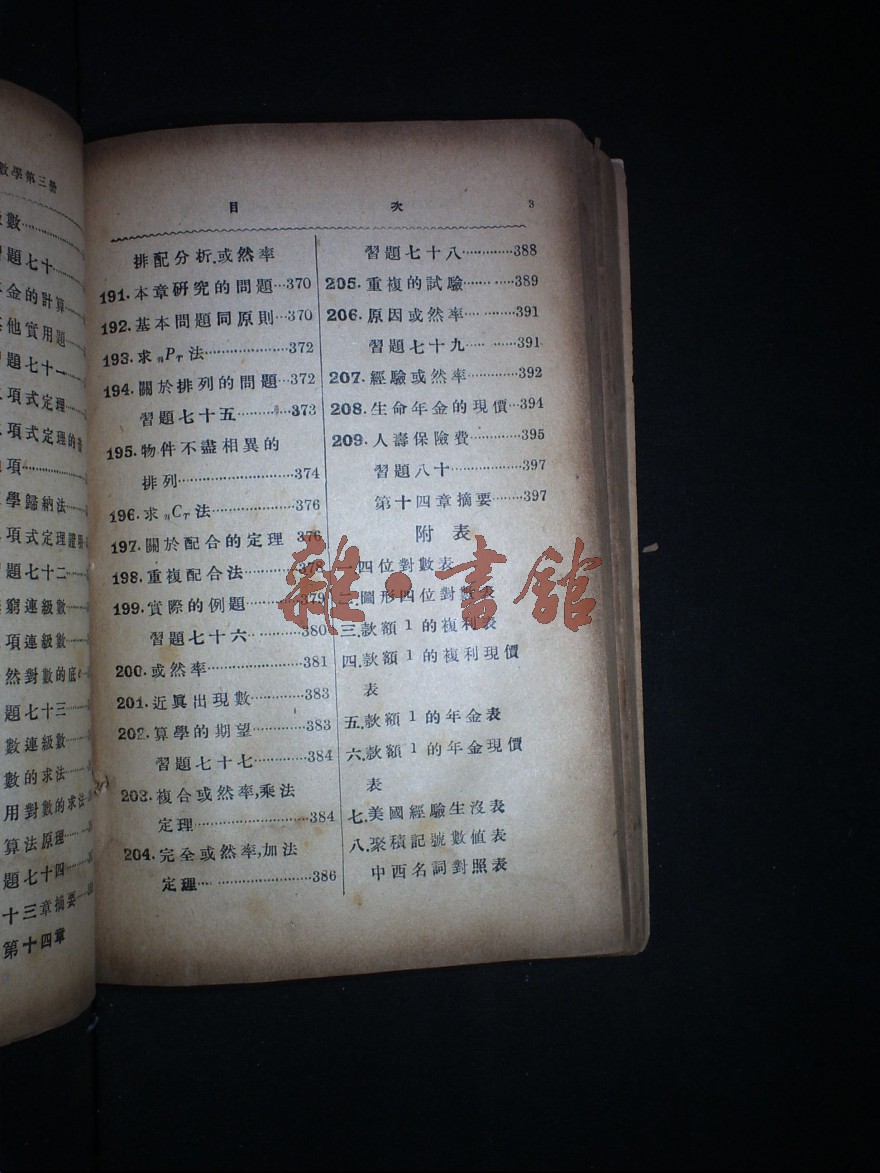 數學第三册
數……
題七十……
金的計算……
他實用題……
題七十一
項式定理……
項式定理的
項……
學歸納法……
項式定理證
題七十二……
窮連級數……
項連級數……
然對數的底e
題七十三……
數連級數……
數的求法……
用對數的求法
算法原理……
題七十四……
十三章摘要……
第十四章
目 次 3
排配分析,或然率
191.本章研究的問題…370
192.基本問題同原則…370
193.求 nPr 法……372
194.關於排列的問題…372
習題七十五……373
195.物件不盡相異的
排列……374
196.求 nCr 法……376
197.關於配合的定理 376
198.重複配合法……378
199.實際的例題……379
習題七十六……380
200.或然率……381
201.近眞出現數……383
202.算學的期望……383
習題七十七……384
203.複合或然率,乘法
定理……384
204.完全或然率,加法
定理……386
習題七十八……388
205.重複的試驗……389
206.原因或然率……391
習題七十九……391
207.經驗或然率……392
208.生命年金的現價…394
209.人壽保險費……395
習題八十……397
第十四章摘要……397
附表
一.四位對數表
二.圖形四位對數表
三.款額1的複利表
四.款額1的複利現價
表
五.款額1的年金表
六.款額1的年金現價
表
七.美國經驗生沒表
八.聚積記號數值表
中西名詞對照表
雜·書館